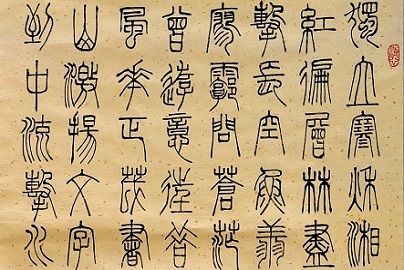 獨立寒秋湘
紅徧層林盡
擊長空魚翔
廖霩問蒼茫
曾遊意往昔
風華正茂書
山激揚文字
到中流擊水